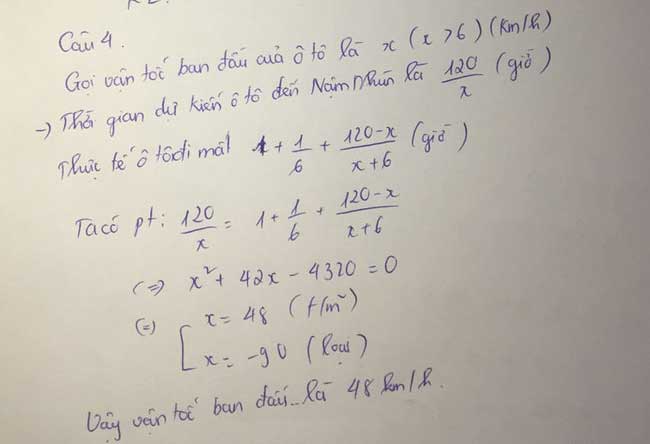 Câu 4.
Gọi vận tốc ban đầu của ô tô là x (x > 6) (km/h)
→ Thời gian dự kiến ô tô đến Nậm Nhùn là 120/x (giờ)
Thực tế ô tô đi mất 1 + 1/6 + (120-x)/(x+6) (giờ)
Ta có pt: 120/x = 1 + 1/6 + (120-x)/(x+6)
(=) x² + 42x - 4320 = 0
(=) [ x = 48 (t/m)
x = -90 (loại)
Vậy vận tốc ban đầu là 48 km/h.